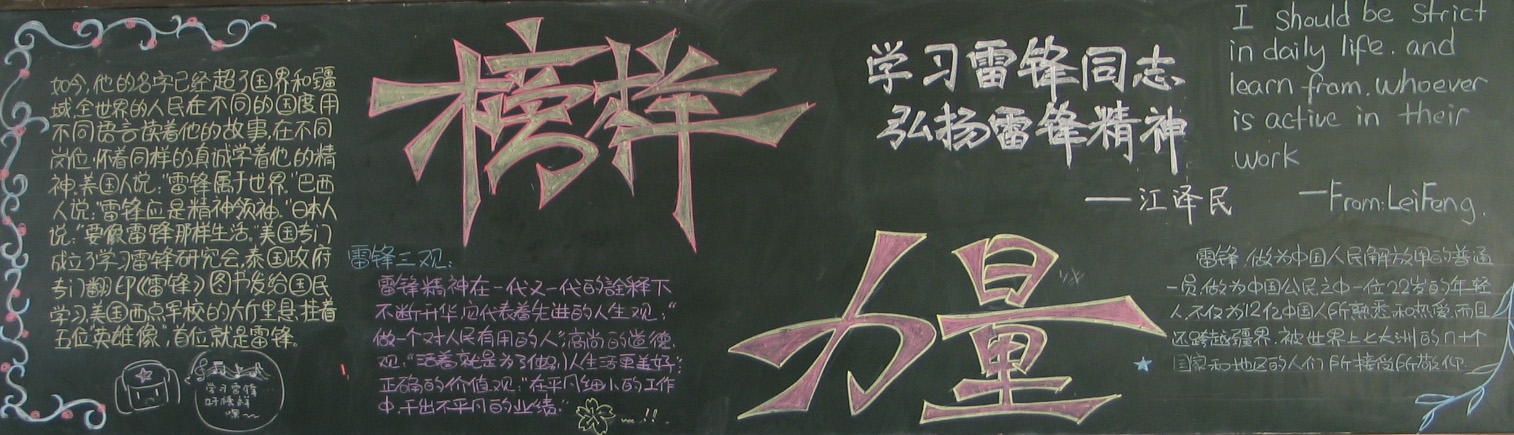 如今,他的名字已经超了国界和疆
域,全世界的人民在不同的国度用
不同语言读着他的故事,在不同
岗位,怀着同样的真诚学着他的精
神.美国人说:"雷锋属于世界."巴西
人说:"雷锋应是精神领袖."日本人
说:"要像雷锋那样生活."美国专门
成立了学习雷锋研究会,泰国政府
专门翻印《雷锋》图书发给国民
学习,美国西点军校的大厅里悬挂着
五位"英雄像",首位就是雷锋。
学习雷锋
好榜样
嘿~~
榜样
雷锋三观:
雷锋精神在一代又一代的诠释下
不断升华,应代表着先进的人生观:"
做一个对人民有用的人";高尚的道德
观:"活着就是为了他人生活更美好";
正确的价值观:"在平凡细小的工作
中,干出不平凡的业绩."
力量
学习雷锋同志
弘扬雷锋精神
——江泽民
I should be strict
in daily life. and
learn from. whoever
is active in their
work
—From:LeiFeng.
雷锋,做为中国人民解放军的普通
一员,做为中国公民之中一位22岁的年轻
人,不仅为12亿中国人所熟悉和热爱,而且
还跨越疆界,被世界上七大洲的n+1个
国家和地区的人们所接受所敬仰.